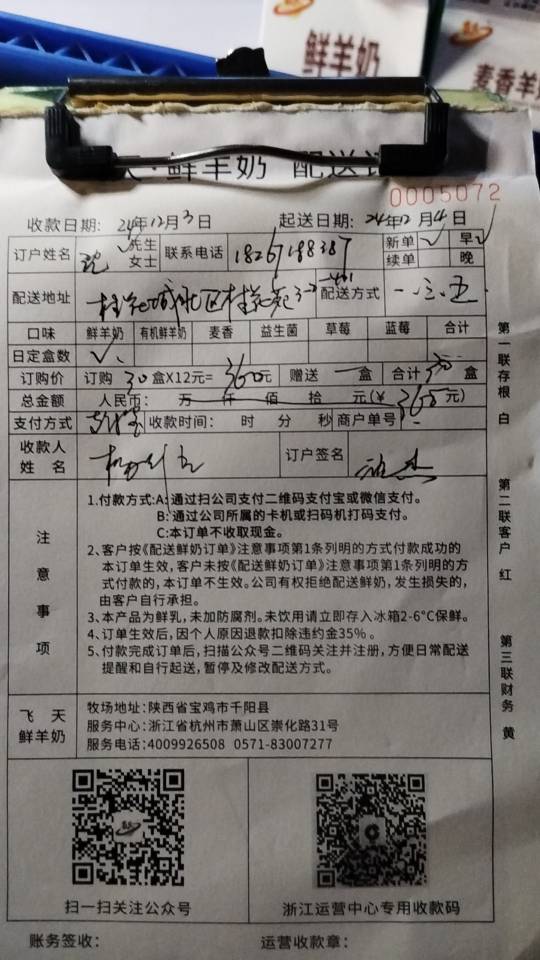 鲜羊奶
麦香羊
·鲜羊奶 配送
0005072
收款日期: 24年12月3日 起送日期: 24年12月4日
订户姓名 先生 女士 联系电话 新单 ✓ 早 ✓
续单 晚
配送地址 配送方式 一.三.五
口味 鲜羊奶 有机鲜羊奶 麦香 益生菌 草莓 蓝莓 合计
日定盒数 ✓
订购价 订购 30 盒X12元= 360元 赠送 一 盒 合计 30 盒
总金额 人民币: 万 仟 佰 拾 元(¥ 360 元)
支付方式 收款时间: 时 分 秒 商户单号
收款人姓名 订户签名
注意事项
1.付款方式:A:通过扫公司支付二维码支付宝或微信支付。
B:通过公司所属的卡机或扫码机打码支付。
C:本订单不收取现金。
2、客户按《配送鲜奶订单》注意事项第1条列明的方式付款成功的
本订单生效,客户未按《配送鲜奶订单》注意事项第1条列明的方
式付款的,本订单不生效。公司有权拒绝配送鲜奶,发生损失的,
由客户自行承担。
3、本产品为鲜乳,未加防腐剂。未饮用请立即存入冰箱2-6°C保鲜。
4、订单生效后,因个人原因退款扣除违约金35%。
5、付款完成订单后,扫描公众号二维码关注并注册,方便日常配送
提醒和自行起送,暂停及修改配送方式。
飞天
鲜羊奶
牧场地址:陕西省宝鸡市千阳县
服务中心:浙江省杭州市萧山区崇化路31号
服务电话:4009926508 0571-83007277
扫一扫关注公众号 浙江运营中心专用收款码
账务签收: 运营收款章:
第一联存根 白
第二联客户 红
第三联财务 黄